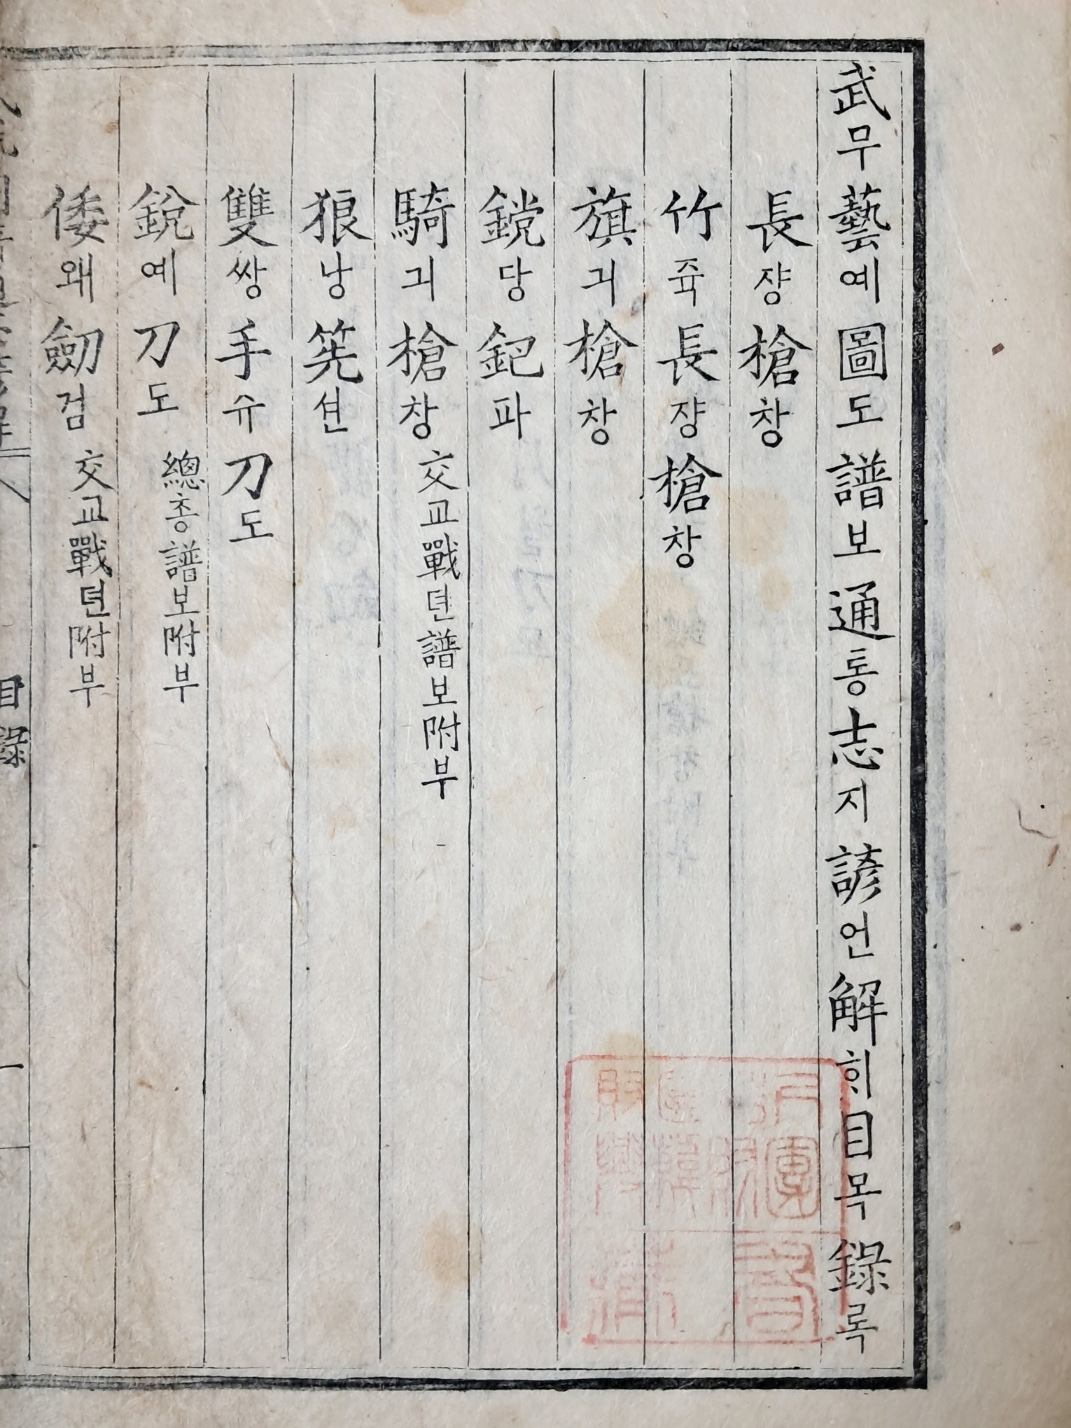 武무藝예圖도譜보通통志지諺언解ᄒᆡ目목錄록
長쟝槍창
竹쥭長쟝槍창
旗긔槍창
鎲당鈀파
騎긔槍창交교戰뎐譜보附부
狼낭筅션
雙쌍手슈刀도
銳예刀도總총譜보附부
倭왜劒검交교戰뎐附부
目錄
一